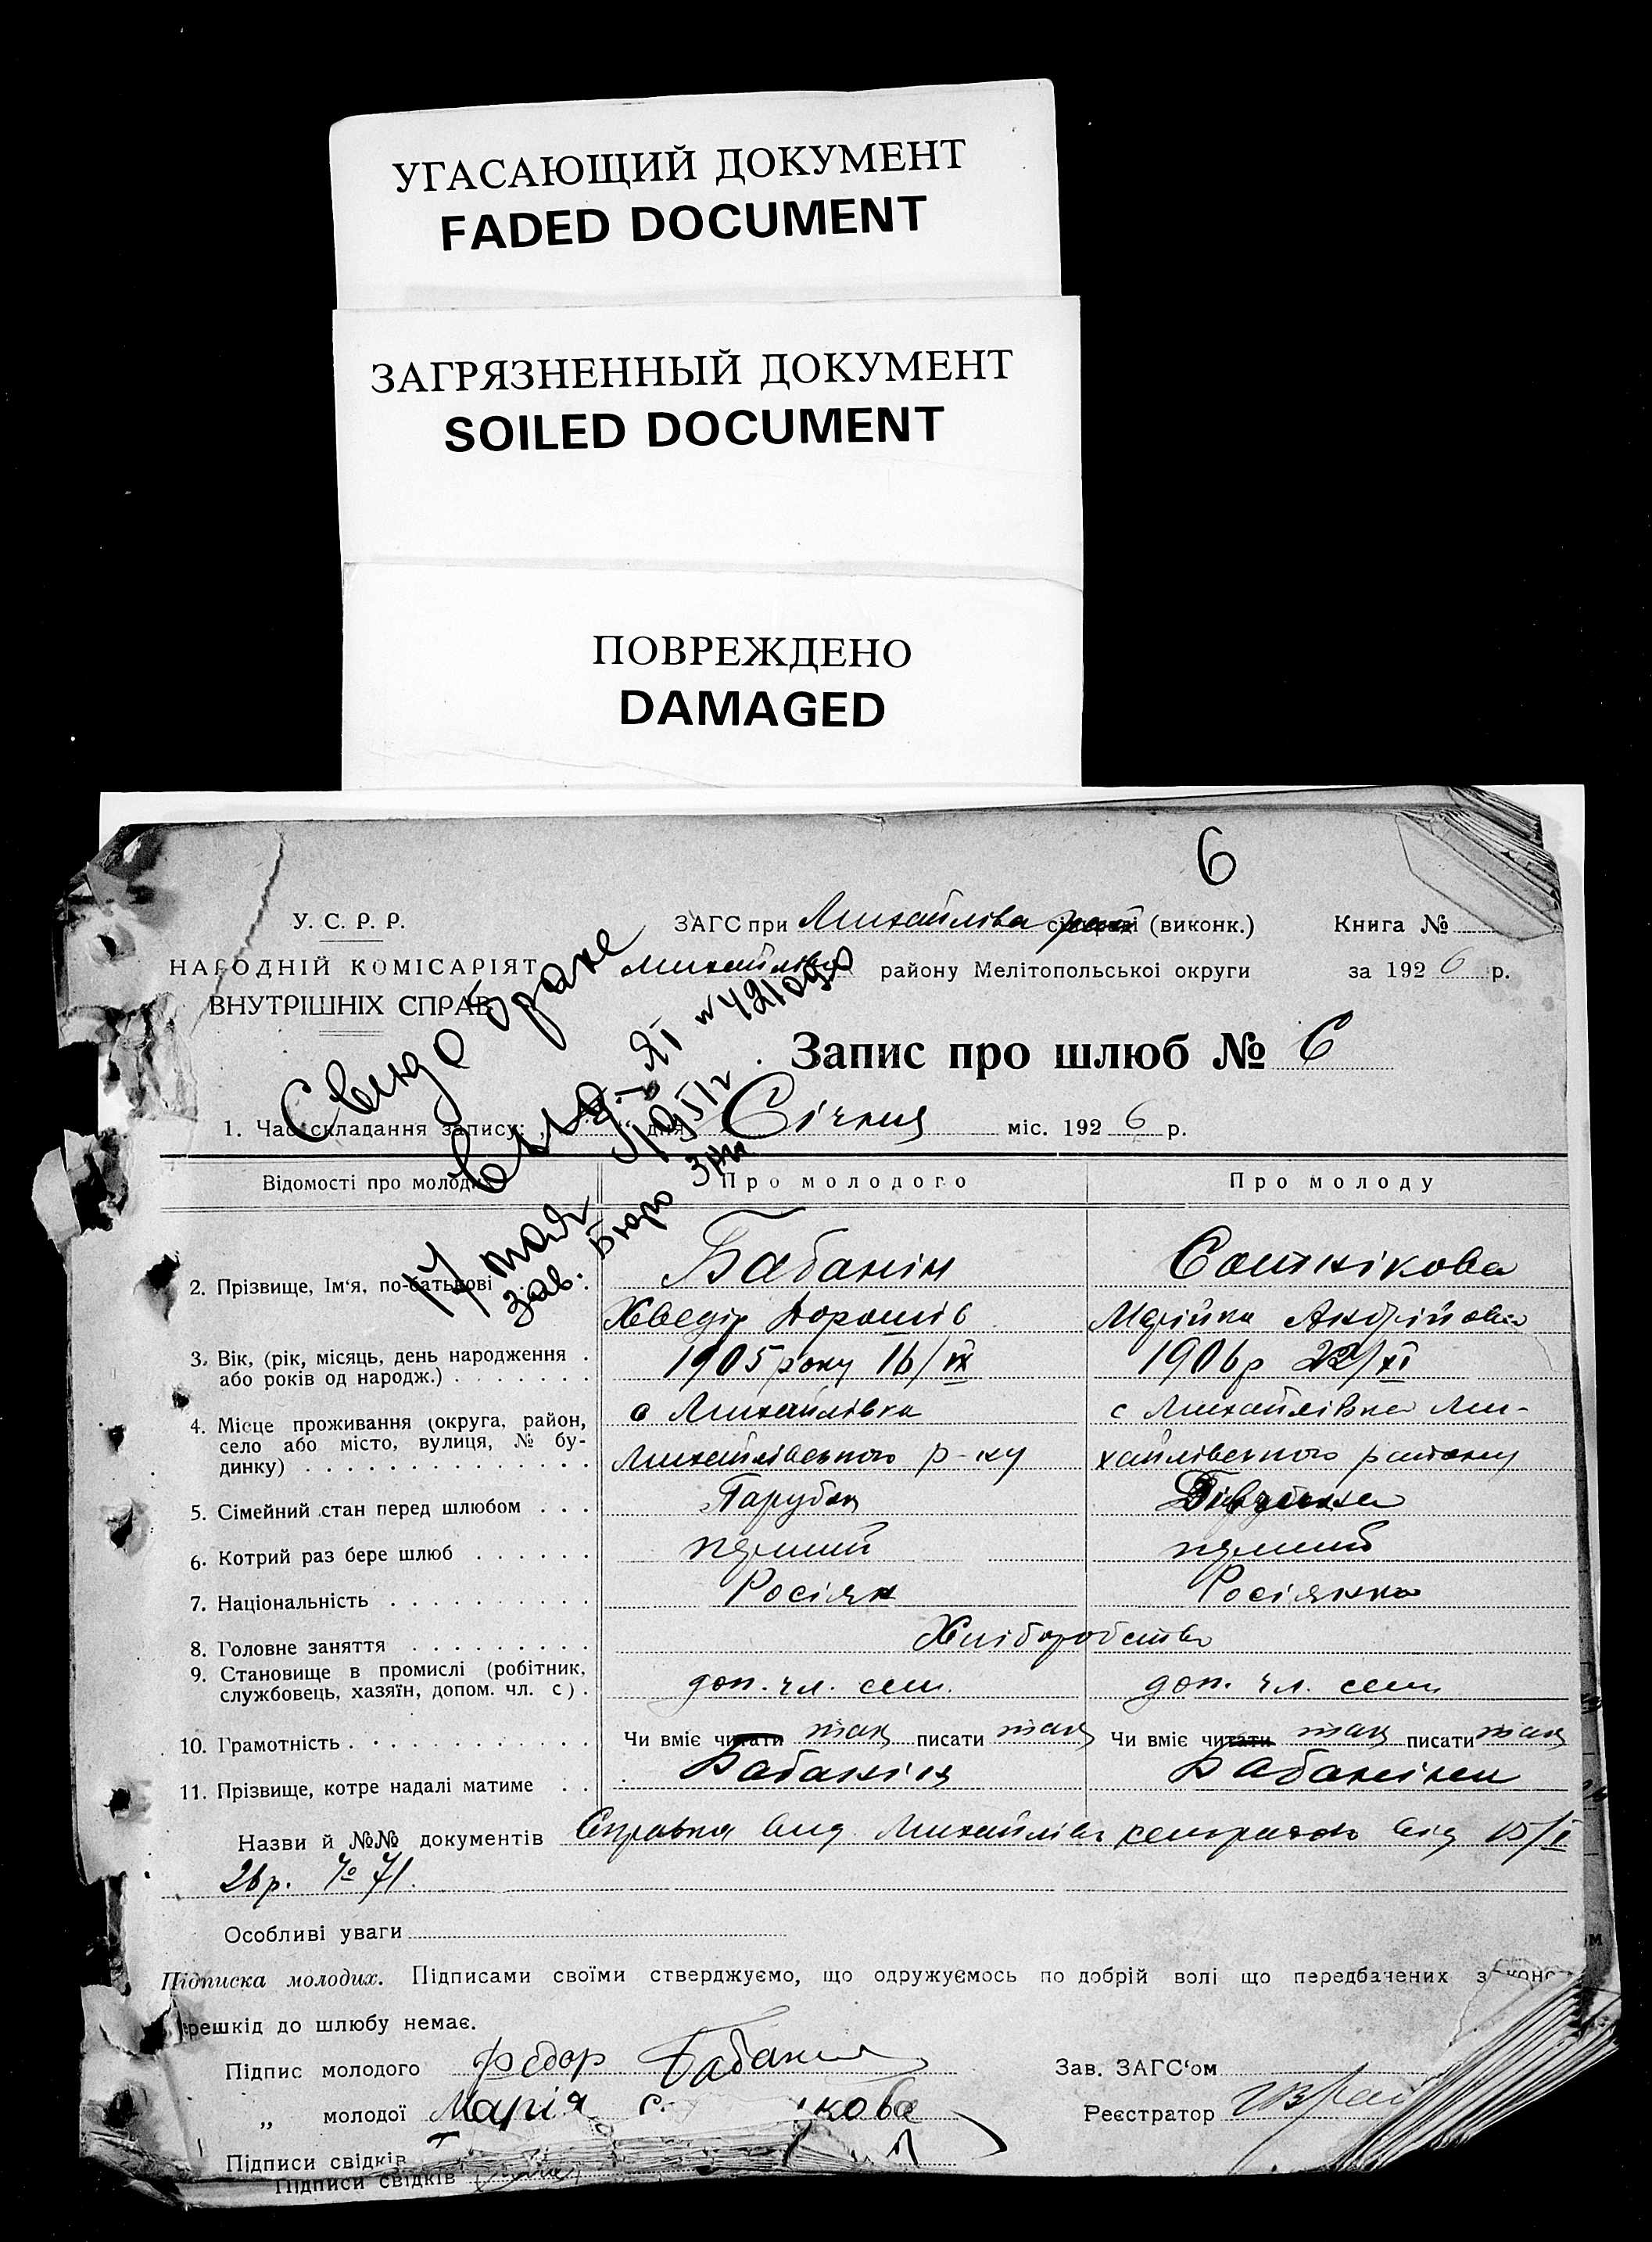 УГАСАЮЩИЙ ДОКУМЕНТ
FADED DOCUMENT
ЗАГРЯЗНЕННЫЙ ДОКУМЕНТ
SOILED DOCUMENT
ПОВРЕЖДЕНО
DAMAGED
6
У. С. Р. Р.
НАРОДНІЙ КОМІСАРІЯТ
ВНУТРІШНІХ СПРАВ
ЗАГС при Михайлівс (виконк.)
Книга №
Михайлівс району Мелітопольської округи
за 1926 р.
Запис про шлюб № 6
Свид о браке
17 мая
зав. Бюро
1. Час складання запису: дня Січня міс. 1926 р.
Відомості про молодих
Про молодого
Про молоду
2. Прізвище, Ім'я, по-батькові
Бабанін
Сотнікова
Хведір
Марійка Андрійовна
3. Вік, (рік, місяць, день народження
або років од народж.)
1905 року 16/IX
1906 р 22/XI
4. Місце проживання (округа, район,
село або місто, вулиця, № бу-
динку)
с Михайлівка
с Михайлівка Ми-
Михайлівського р-ну
хайлівського району
5. Сімейний стан перед шлюбом
Парубок
Дівчина
6. Котрий раз бере шлюб
перший
перший
7. Національність
Росіян
Росіянка
8. Головне заняття
Хліборобство
9. Становище в промислі (робітник,
службовець, хазяїн, допом. чл. с).
доп. чл. сем.
доп. чл. сем.
10. Грамотність
Чи вміє читати так писати так
Чи вміє читати так писати так
11. Прізвище, котре надалі матиме
Бабанін
Бабаніна
Назви й №№ документів Справка вид Михайлівс від 15/I
26 р. № 71.
Особливі уваги
Підписка молодих. Підписами своїми стверджуємо, що одружуємось по добрій волі що передбачених
решкід до шлюбу немає.
Підпис молодого Федор Бабанин
Зав. ЗАГС'ом
„ молодої Марія С кова
Реєстратор
Підписи свідків
Підписи свідків